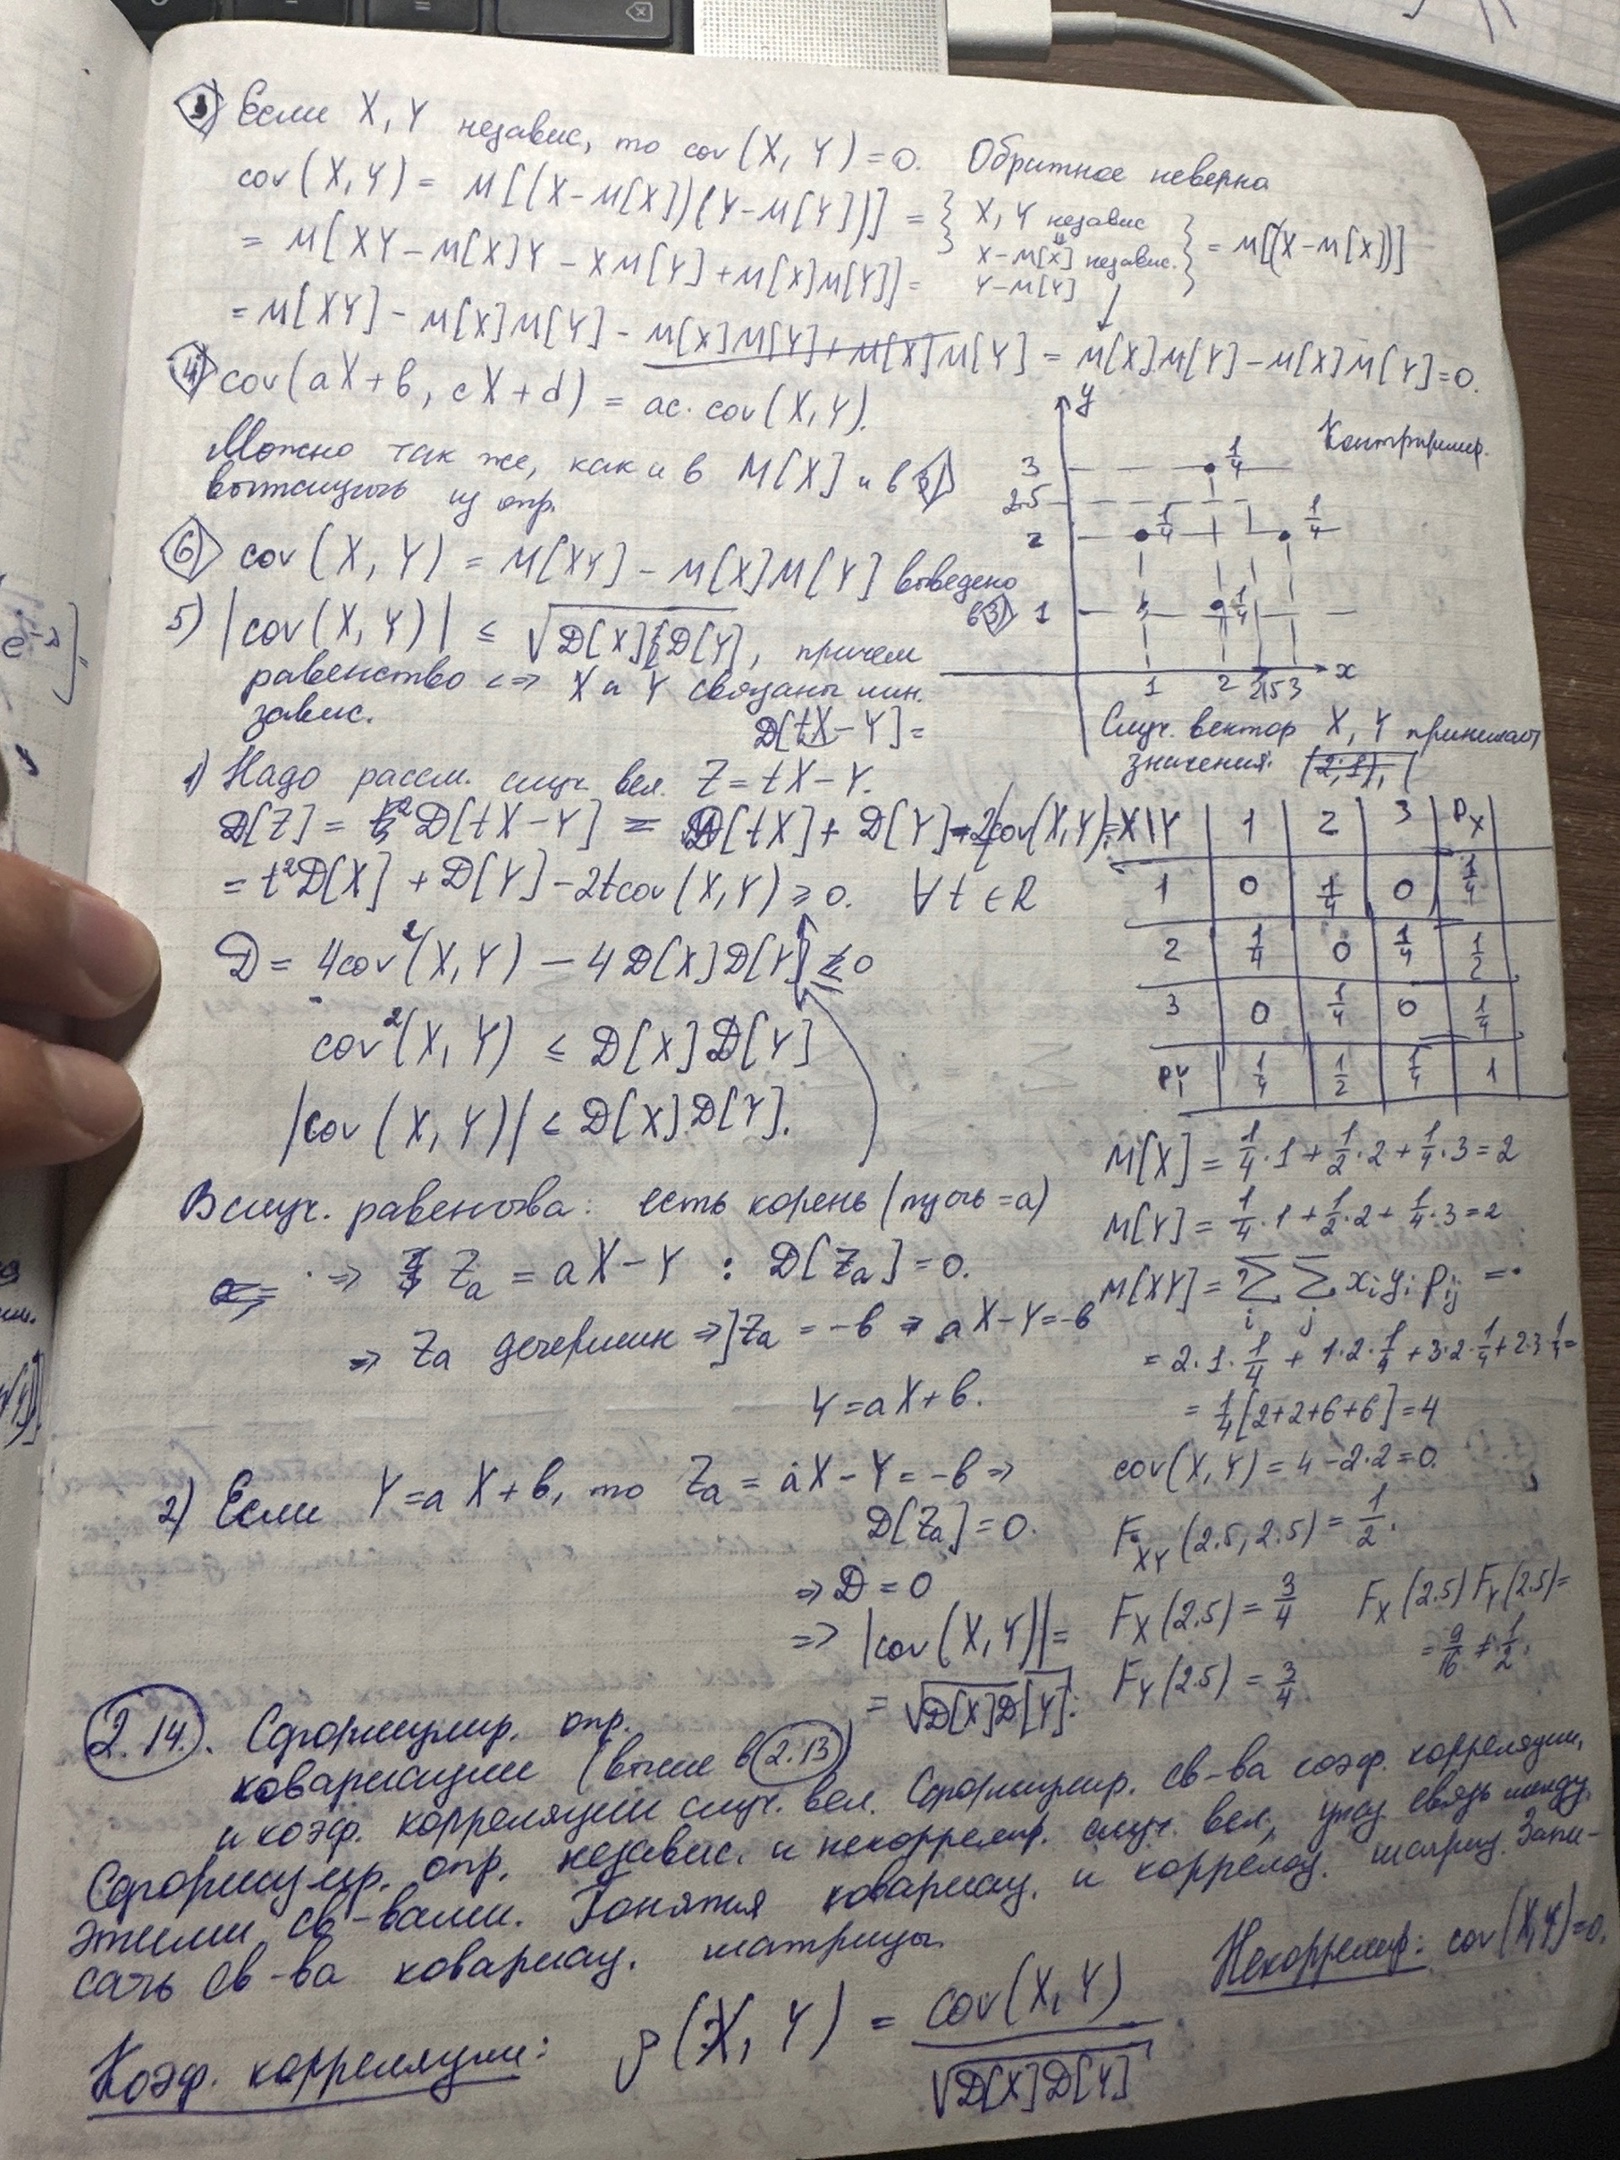 3) Если X, Y независ, то cov(X, Y) = 0. Обритное неверно
cov(X, Y) = M[(X-M[X])(Y-M[Y])] = { X, Y независ ⇓ X-M[X] независ. Y-M[Y] } = M[(X-M[X])]
= M[XY - M[X]Y - XM[Y] + M[X]M[Y]] =
= M[XY] - M[X]M[Y] - M[X]M[Y] + M[X]M[Y] = M[X]M[Y] - M[X]M[Y] = 0.
4) cov(aX+b, cX+d) = ac·cov(X,Y).
Можно так же, как и в M[X] и в 3)
вытащить из опр.
6) cov(X, Y) = M[XY] - M[X]M[Y] выведено
в 3)
5) |cov(X, Y)| ≤ √D[X]D[Y], причем
равенство <=> X и Y связаны лин.
завис.
D[tX-Y] =
1) Надо рассм. случ. вел. Z = tX - Y.
D[Z] = D[tX-Y] = D[tX] + D[Y] - 2cov(X,Y) =
= t²D[X] + D[Y] - 2tcov(X,Y) ≥ 0. ∀t ∈ R
D = 4cov²(X,Y) - 4D[X]D[Y] ≤ 0
cov²(X,Y) ≤ D[X]D[Y]
|cov(X,Y)| ≤ D[X]D[Y].
В случ. равенства: есть корень (пусть = a)
⇒ Za = aX - Y : D[Za] = 0.
⇒ Za детермин ⇒ ]Za = -b ⇒ aX - Y = -b
Y = aX + b.
2) Если Y = aX + b, то Za = aX - Y = -b ⇒
D[Za] = 0.
⇒ D = 0
⇒ |cov(X,Y)| =
= √D[X]D[Y].
Контрпример.
y
3 1/4
2.5
2 1/4 1/4
1 1/4
1 2 2.5 3 x
Случ. вектор X, Y принимает
значения: (2;1), (
X\Y | 1 | 2 | 3 | Px
1 | 0 | 1/4 | 0 | 1/4
2 | 1/4 | 0 | 1/4 | 1/2
3 | 0 | 1/4 | 0 | 1/4
PY | 1/4 | 1/2 | 1/4 | 1
M[X] = 1/4·1 + 1/2·2 + 1/4·3 = 2
M[Y] = 1/4·1 + 1/2·2 + 1/4·3 = 2
M[XY] = Σi Σj xi yi pij =
= 2·1·1/4 + 1·2·1/4 + 3·2·1/4 + 2·3·1/4 =
= 1/4[2+2+6+6] = 4
cov(X,Y) = 4 - 2·2 = 0.
FXY(2.5, 2.5) = 1/2.
FX(2.5) = 3/4 FX(2.5)FY(2.5) =
= 9/16 ≠ 1/2.
FY(2.5) = 3/4.
2.14. Сформулир. опр.
ковариации (выше в 2.13)
и коэф. корреляции случ. вел. Сформулир. св-ва коэф. корреляции,
Сформулир. опр. независ. и некоррелир. случ. вел., указ. связь между
этими св-вами. Понятия ковариац. и корреляц. матриц. Запи-
сать св-ва ковариац. матрицы.
Некоррелир: cov(X,Y)=0.
Коэф. корреляции: ρ(X, Y) = cov(X, Y) / √D[X]D[Y]